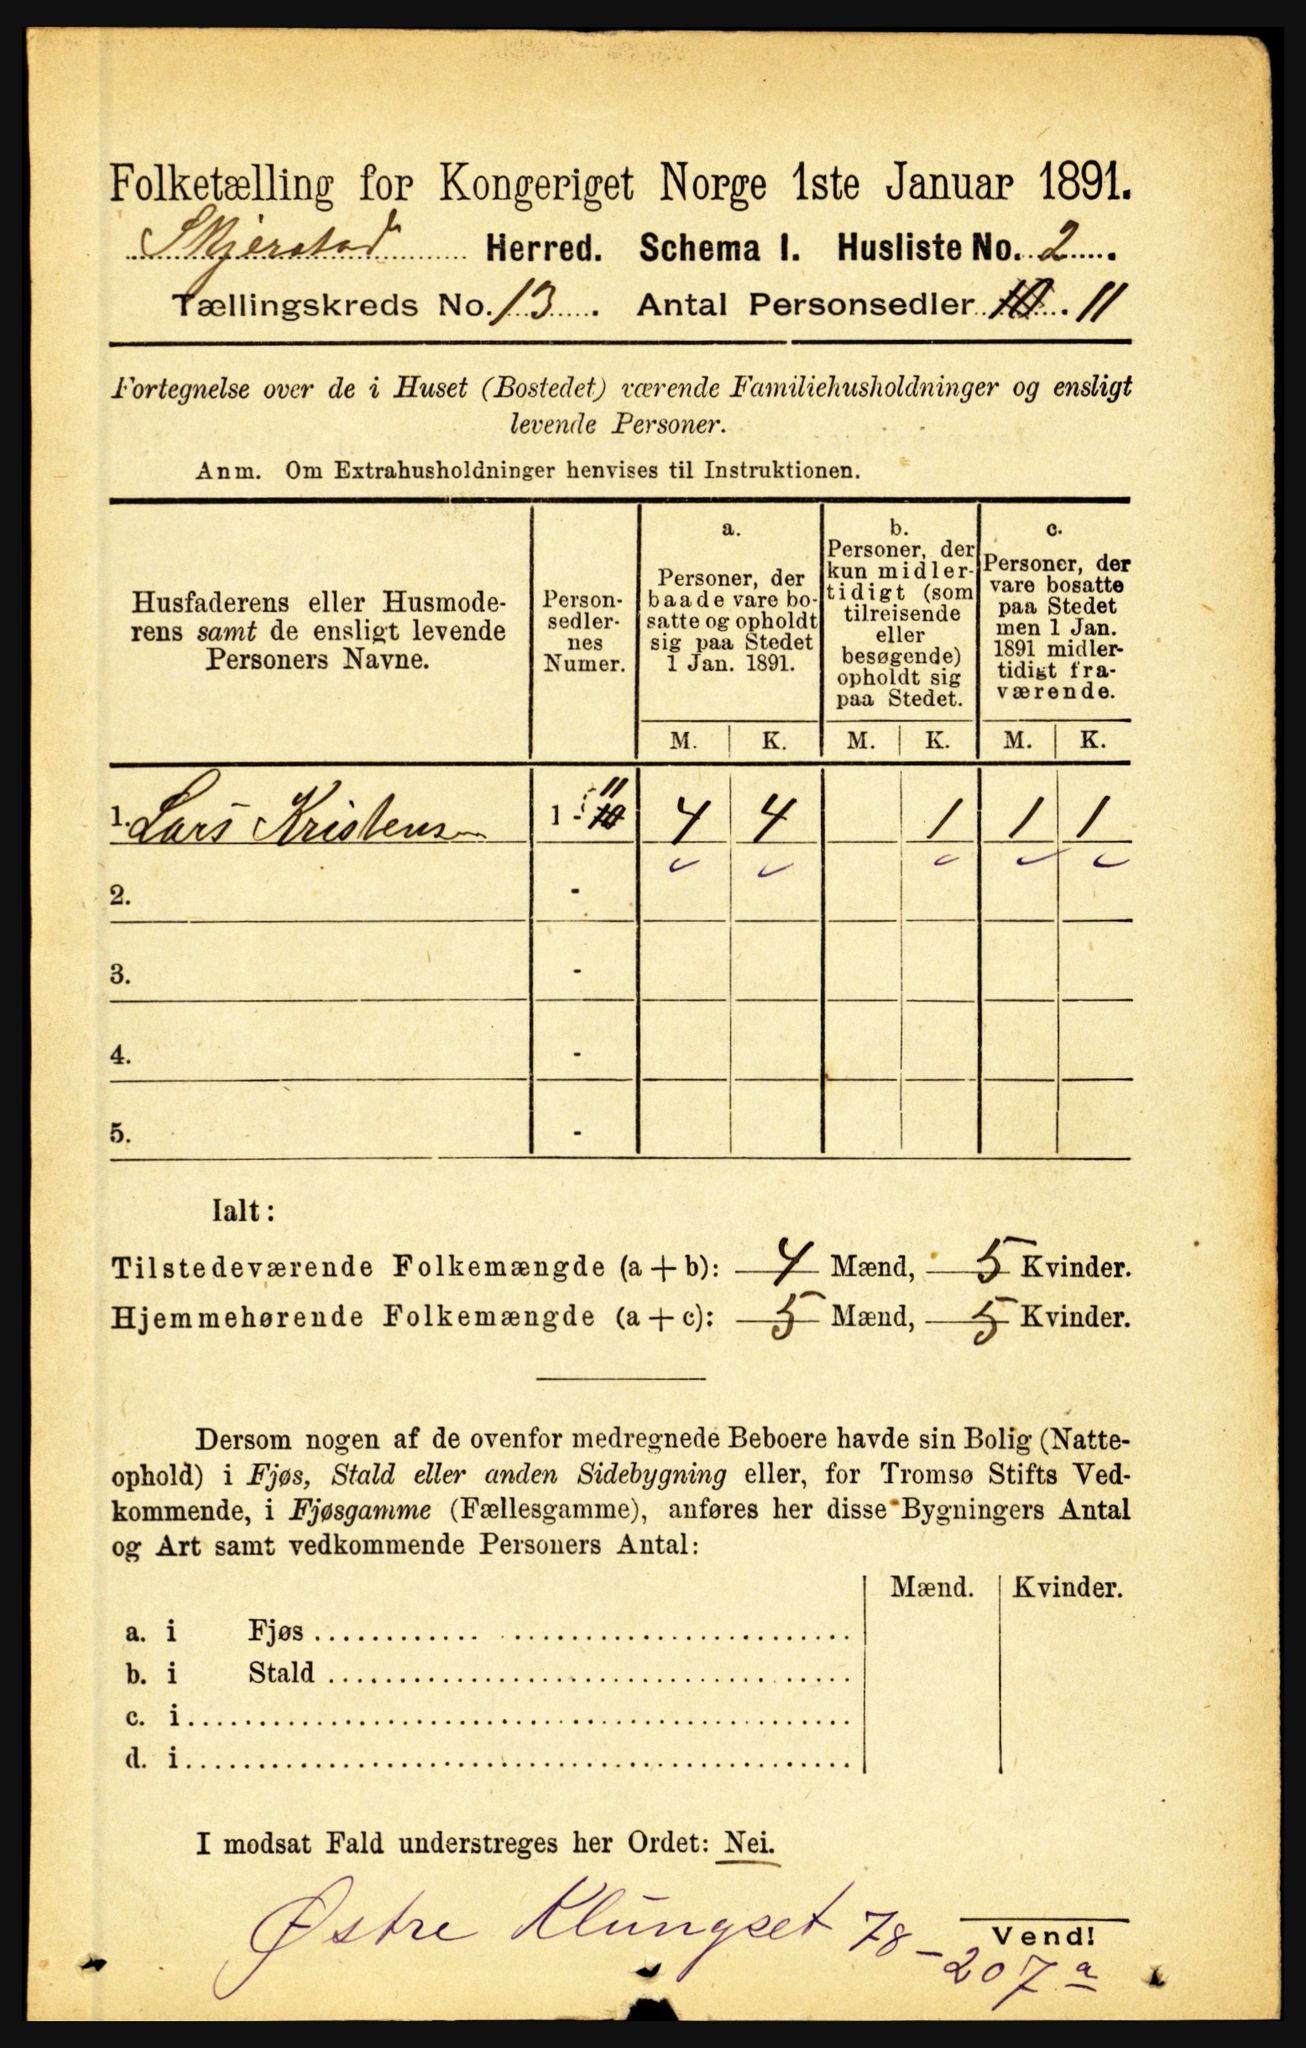 Folketælling for Kongeriget Norge 1ste Januar 1891.
Skjerstad Herred. Schema I. Husliste No. 2
Tællingskreds No. 13. Antal Personsedler 10. 11
Fortegnelse over de i Huset (Bostedet) værende Familiehusholdninger og ensligt
levende Personer.
Anm. Om Extrahusholdninger henvises til Instruktionen.
Husfaderens eller Husmode-
rens samt de ensligt levende
Personers Navne.
Person-
sedler-
nes
Numer.
a.
Personer, der
baade vare bo-
satte og opholdt
sig paa Stedet
1 Jan. 1891.
b.
Personer, der
kun midler-
tidigt (som
tilreisende
eller
besøgende)
opholdt sig
paa Stedet.
c.
Personer, der
vare bosatte
paa Stedet
men 1 Jan.
1891 midler-
tidigt fra-
værende.
M. K. M. K. M. K.
1. Lars Kristens 1 - 10 11 4 4 1 1 1
2. -
3. -
4. -
5. -
Ialt:
Tilstedeværende Folkemængde (a + b): 4 Mænd, 5 Kvinder.
Hjemmehørende Folkemængde (a + c): 5 Mænd, 5 Kvinder.
Dersom nogen af de ovenfor medregnede Beboere havde sin Bolig (Natte-
ophold) i Fjøs, Stald eller anden Sidebygning eller, for Tromsø Stifts Ved-
kommende, i Fjøsgamme (Fællesgamme), anføres her disse Bygningers Antal
og Art samt vedkommende Personers Antal:
Mænd. Kvinder.
a. i Fjøs
b. i Stald
c. i
d. i
I modsat Fald understreges her Ordet: Nei.
Vend!
Østre Klungset 78-207a